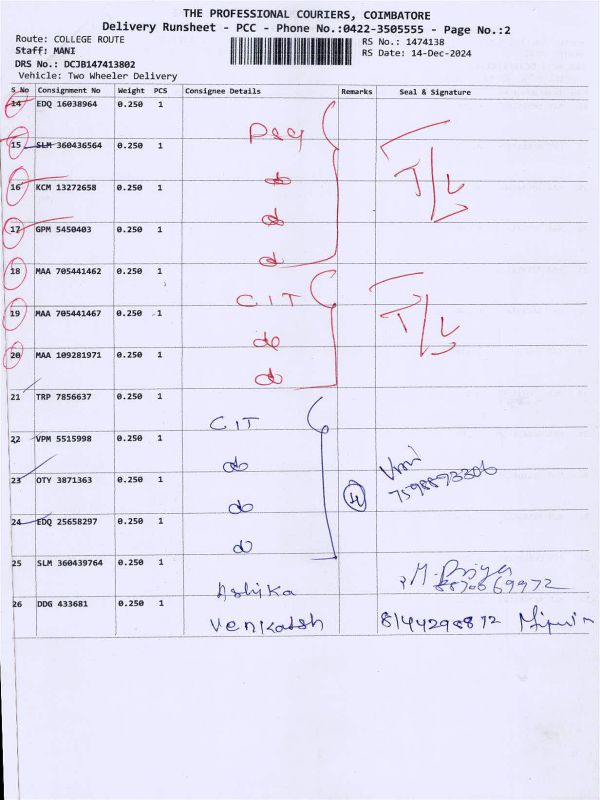 THE PROFESSIONAL COURIERS, COIMBATORE
Delivery Runsheet - PCC - Phone No.:0422-3505555 - Page No.:2
Route: COLLEGE ROUTE
Staff: MANI
DRS No.: DCJB147413802
Vehicle: Two Wheeler Delivery
RS No.: 1474138
RS Date: 14-Dec-2024
S No Consignment No Weight PCS Consignee Details Remarks Seal & Signature
14 EDQ 16038964 0.250 1
PSG
15 SLM 360436564 0.250 1
do
16 KCM 13272658 0.250 1
do T/L
17 GPM 5450403 0.250 1
do
18 MAA 705441462 0.250 1
CIT
19 MAA 705441467 0.250 1
do T/L
20 MAA 109281971 0.250 1
do
21 TRP 7856637 0.250 1
CIT
22 VPM 5515998 0.250 1
do
23 OTY 3871363 0.250 1
do 4
24 EDQ 25658297 0.250 1
do
25 SLM 360439764 0.250 1
Ashika M. Priya
26 DDG 433681 0.250 1
Venkatsh 8144298872